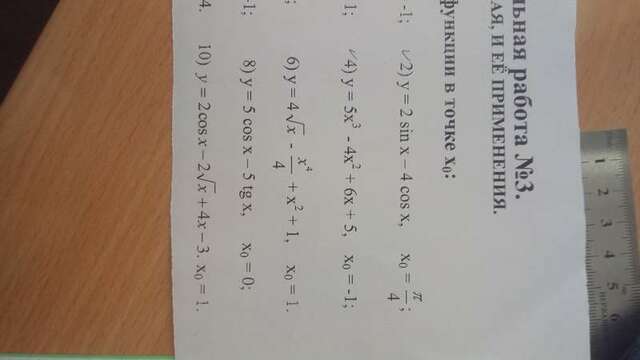 льная работа №3.
АЯ, И ЕЁ ПРИМЕНЕНИЯ.
функции в точке x₀:
-1; ✓2) y = 2 sin x – 4 cos x, x₀ = π/4;
1; ✓4) y = 5x³ - 4x² + 6x + 5, x₀ = -1;
; 6) y = 4√x - x⁴/4 + x² + 1, x₀ = 1.
-1; 8) y = 5 cos x – 5 tg x, x₀ = 0;
4. 10) y = 2cos x – 2√x + 4x – 3. x₀ = 1.
1 2 3 4 5 6